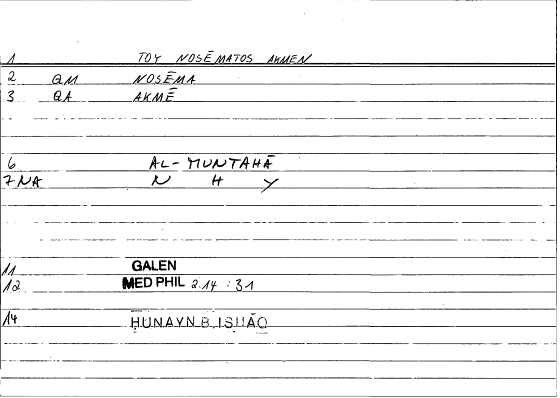 1 TOY NOSĒMATOS AKMEN
2 QM NOSĒMA
3 QA AKMĒ
6 AL-MUNTAHĀ
7 NA N H Y
11 GALEN
12 MED PHIL 2.14 : 31
14 HUNAYN B. ISḤĀQ